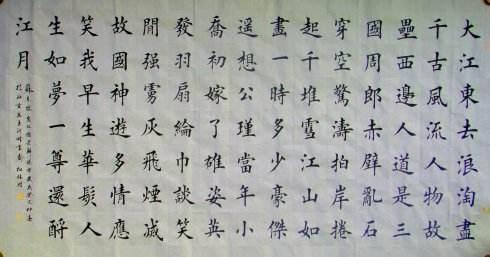 大江東去浪淘盡
千古風流人物故
壘西邊人道是三
國周郎赤壁亂石
穿空驚濤拍岸捲
起千堆雪江山如
畫一時多少豪傑
遙想公瑾當年小
喬初嫁了雄姿英
發羽扇綸巾談笑
閒强虜灰飛煙滅
故國神遊多情應
笑我早生華髮人
生如夢一尊還酹
江月